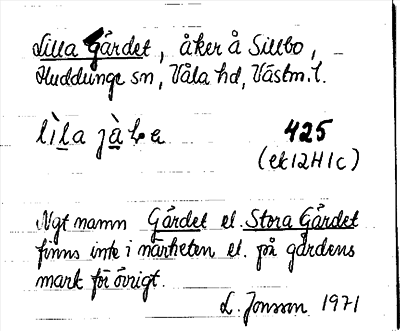 Lilla Gärdet, åker å Sillbo,
Huddunge sn, Våla hd, Västm. l.
lìla jàḷe 425
(ek 12H1c)
Ngt namn Gärdet el. Stora Gärdet
finns inte i närheten el. på gårdens
mark för övrigt.
L. Jonsson 1971